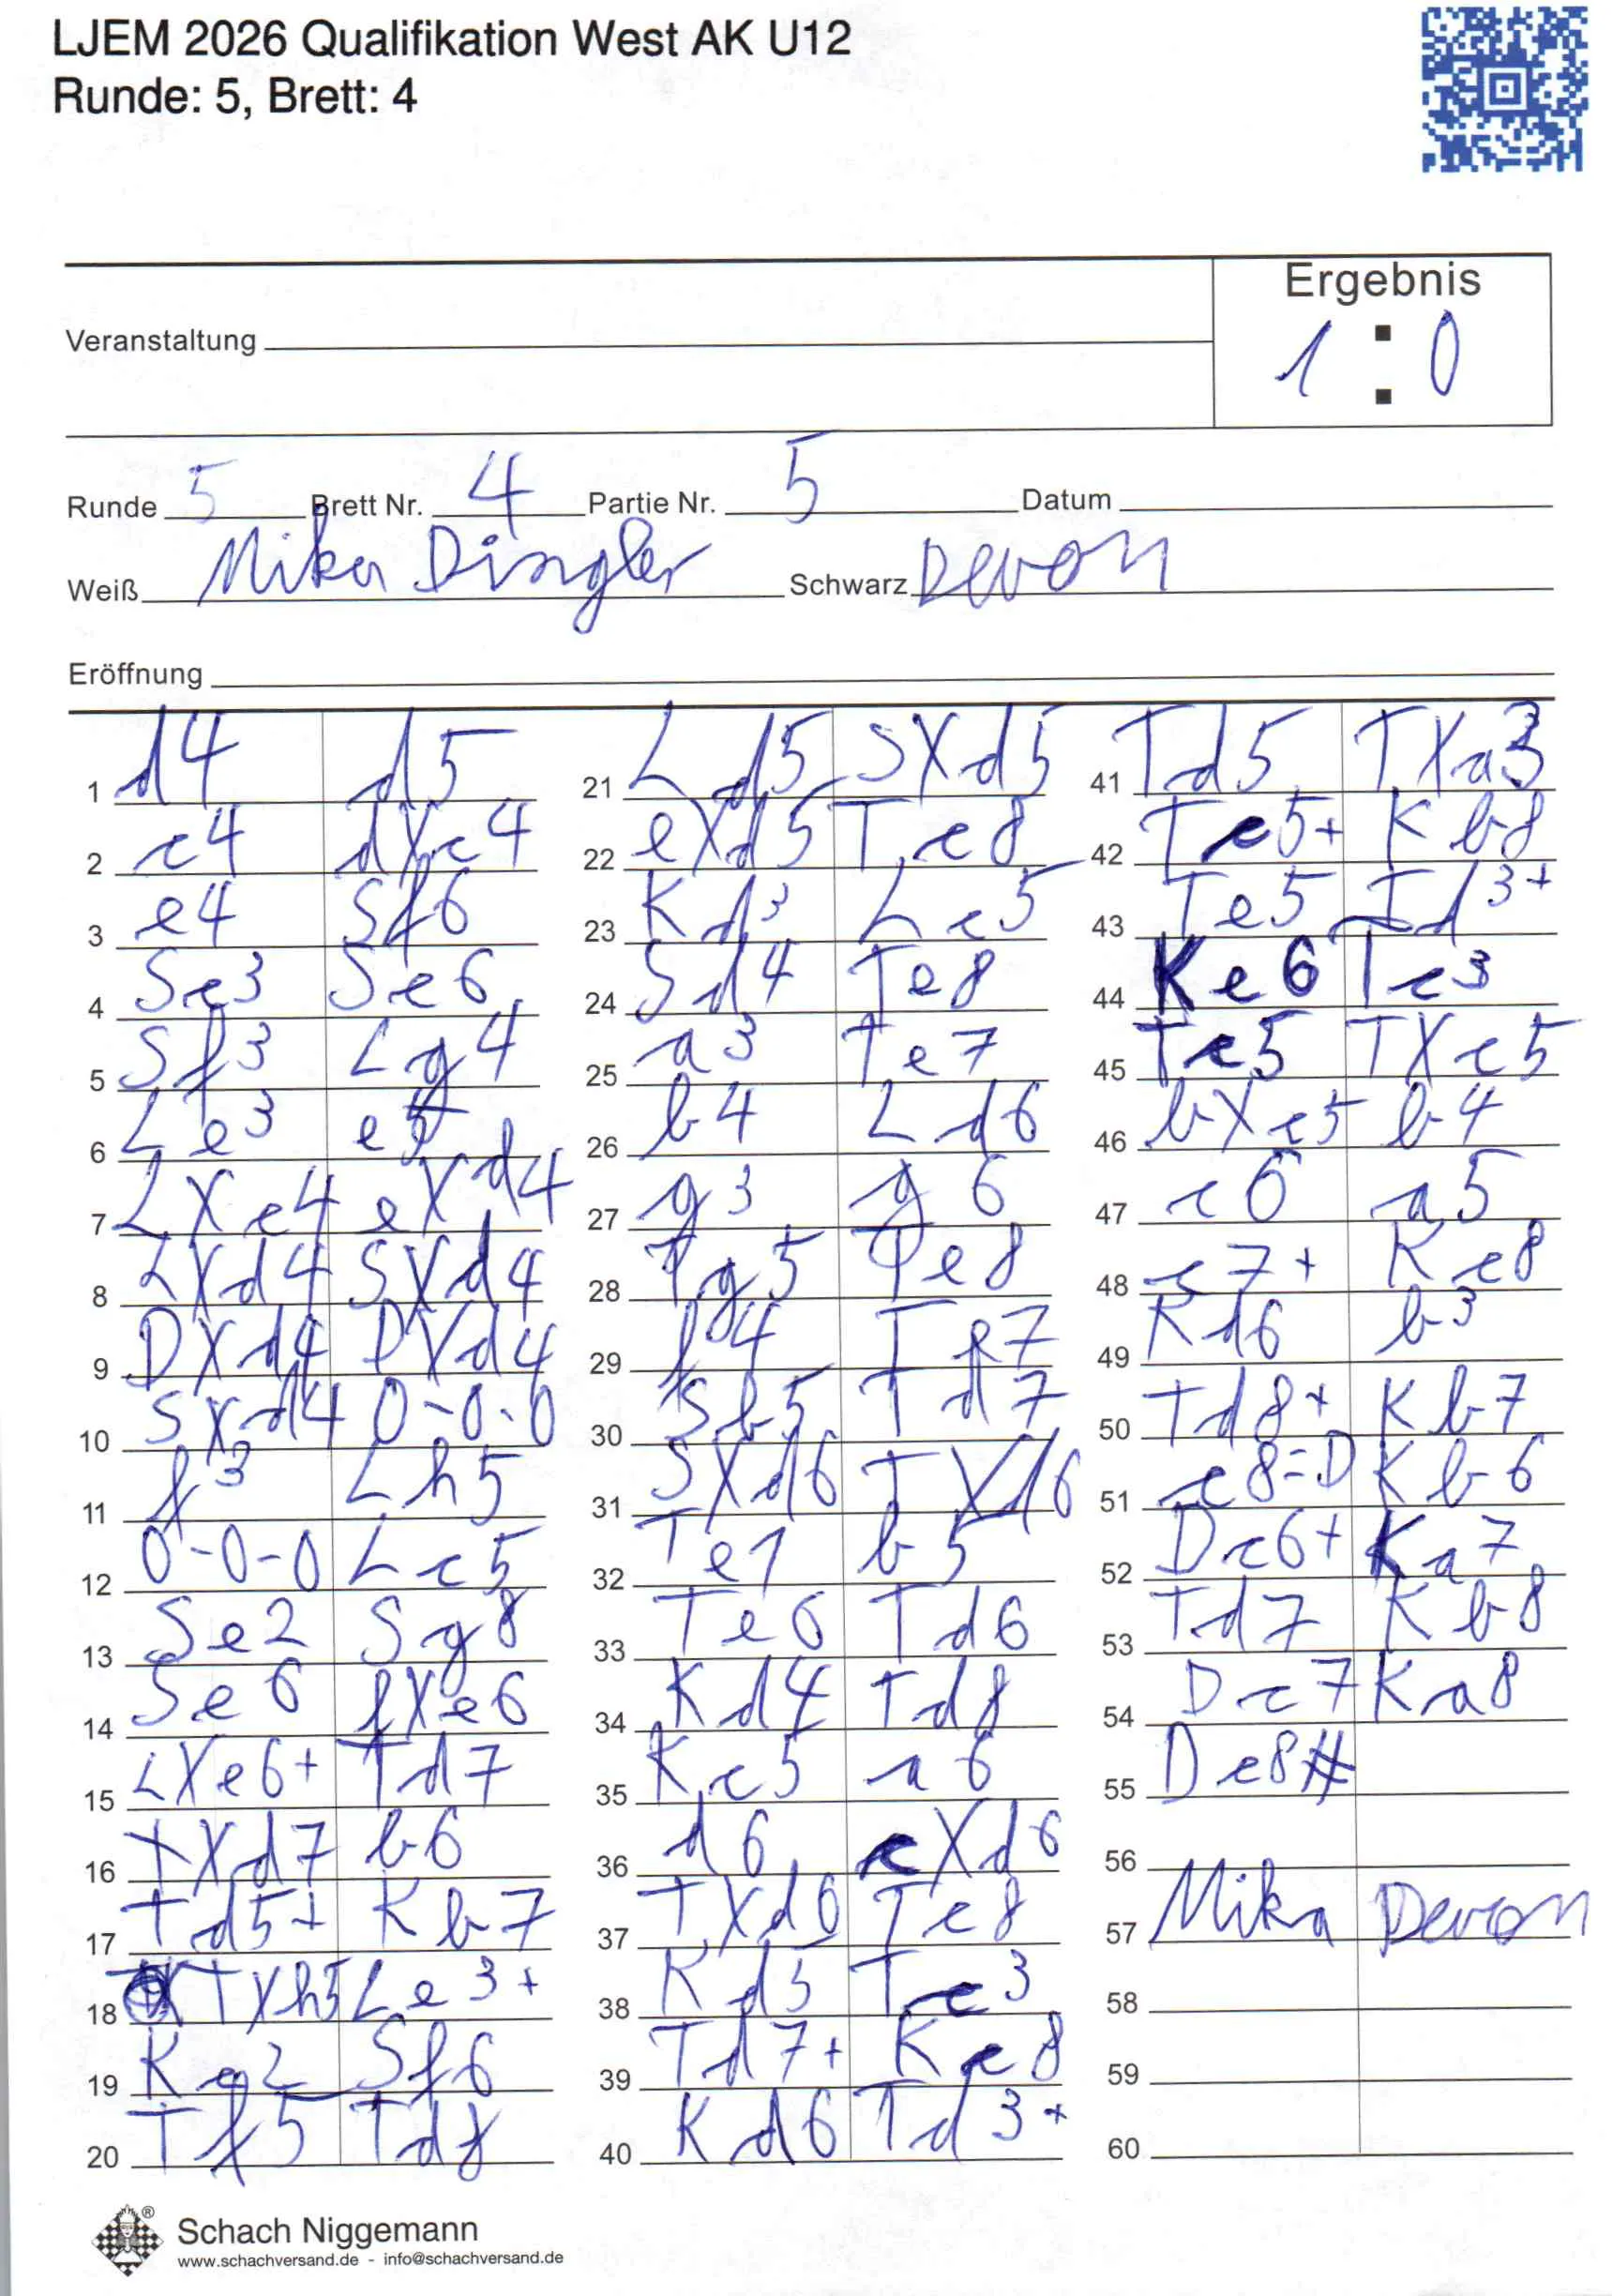 LJEM 2026 Qualifikation West AK U12
Runde: 5, Brett: 4
Ergebnis
1 : 0
Veranstaltung
Runde 5 Brett Nr. 4 Partie Nr. 5 Datum
Weiß Mika Dingler Schwarz Devon
Eröffnung
1 d4 d5
2 c4 dXc4
3 e4 Sf6
4 Sc3 Sc6
5 Sf3 Lg4
6 Le3 e5
7 LXc4 eXd4
8 LXd4 SXd4
9 DXd4 DXd4
10 SXd4 0-0-0
11 f3 Lh5
12 0-0-0 Lc5
13 Se2 Sg8
14 Se6 fXe6
15 LXe6+ Td7
16 TXd7 b6
17 Td5+ Kb7
18 TXh5 Le3+
19 Kc2 Sf6
20 Tf5 Td8
21 Ld5 SXd5
22 eXd5 Te8
23 Kd3 Lc5
24 Sd4 Te8
25 a3 Te7
26 b4 Ld6
27 g3 g6
28 Tg5 Te8
29 f4 Te7
30 Sb5 Td7
31 SXd6 TXd6
32 Te1 b5
33 Te6 Td6
34 Kd4 Td8
35 Kc5 a6
36 d6 cXd6
37 TXd6 Tc8
38 Kd5 Tc3
39 Td7+ Kc8
40 Kd6 Td3+
41 Td5 TXa3
42 Tc5+ Kb8
43 Te5 Td3+
44 Kc6 Tc3
45 Tc5 TXc5
46 bXc5 b4
47 c6 a5
48 c7+ Kc8
49 Kd6 b3
50 Td8+ Kb7
51 c8=D Kb6
52 Dc6+ Ka7
53 Td7 Kb8
54 Dc7 Ka8
55 Dc8#
56
57 Mika Devon
58
59
60
Schach Niggemann ®
www.schachversand.de - info@schachversand.de